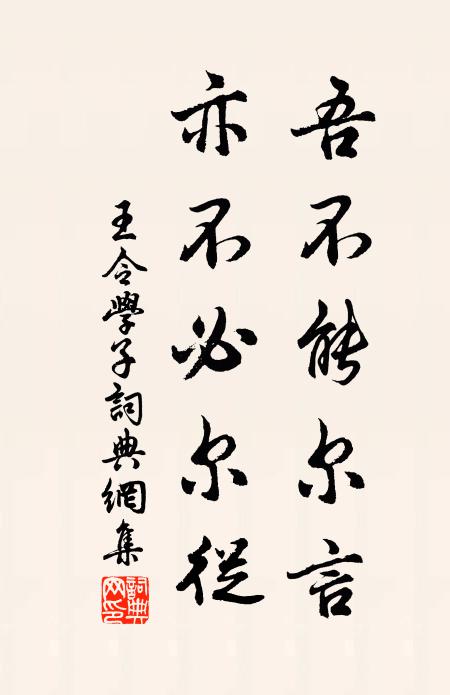 吾不能尔言
亦不必尔從
王令學子詞典網集
詞典网印